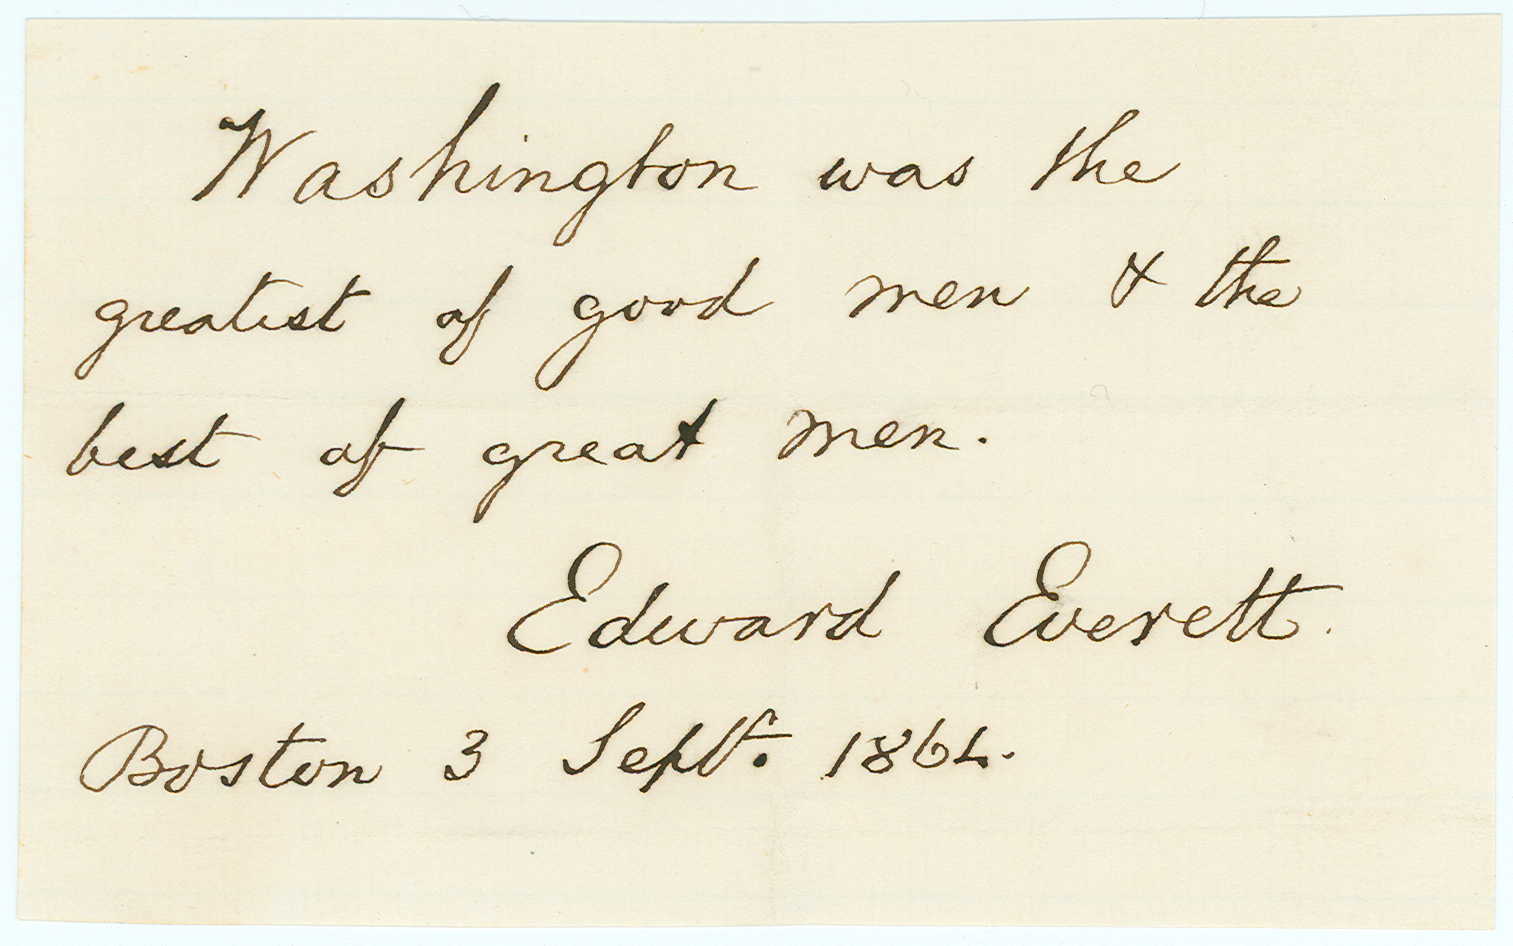 Washington was the
greatest of good men & the
best of great men.
Edward Everett.
Boston 3 Septr. 1864.